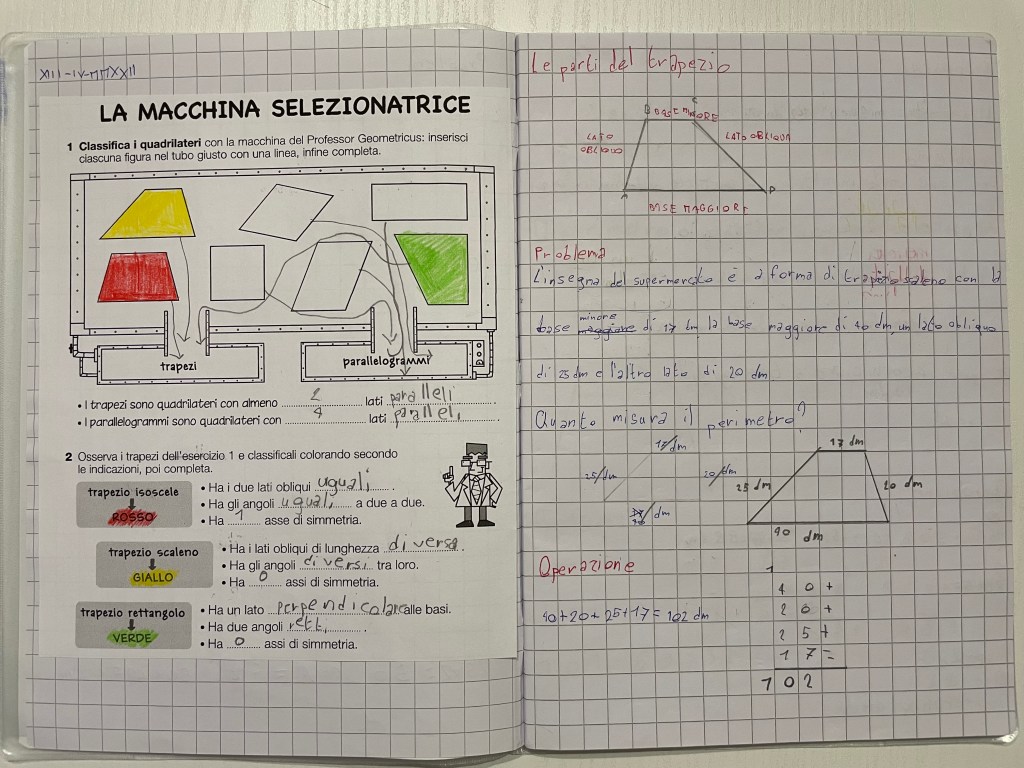 XIII-IV-MMXXII
LA MACCHINA SELEZIONATRICE
1 Classifica i quadrilateri con la macchina del Professor Geometricus: inserisci
ciascuna figura nel tubo giusto con una linea, infine completa.
trapezi
parallelogrammi
• I trapezi sono quadrilateri con almeno 2 lati paralleli.
• I parallelogrammi sono quadrilateri con 4 lati paralleli.
2 Osserva i trapezi dell'esercizio 1 e classificali colorando secondo
le indicazioni, poi completa.
trapezio isoscele
ROSSO
• Ha i due lati obliqui uguali.
• Ha gli angoli uguali a due a due.
• Ha 1 asse di simmetria.
trapezio scaleno
GIALLO
• Ha i lati obliqui di lunghezza diversa.
• Ha gli angoli diversi tra loro.
• Ha 0 assi di simmetria.
trapezio rettangolo
VERDE
• Ha un lato perpendicolare alle basi.
• Ha due angoli retti.
• Ha 0 assi di simmetria.
Le parti del trapezio
B C
BASE MINORE
LATO
OBLIQUO
LATO OBLIQUO
A
BASE MAGGIORE
Problema
L'insegna del supermercato è a forma di trapezio scaleno con la
minore
base maggiore di 17 dm la base maggiore di 40 dm, un lato obliquo
di 25 dm e l'altro lato di 20 dm.
Quanto misura il perimetro?
25 dm
20 dm
dm
17 dm
25 dm
20 dm
40 dm
Operazione
40+20+25+17= 102 dm
1
40+
20+
25+
17=
102